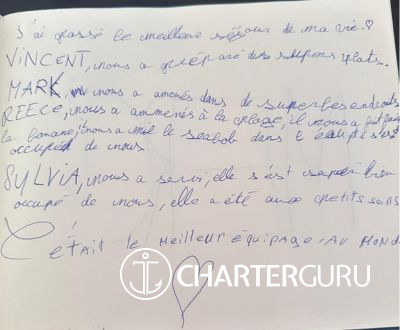 J'ai passé le meilleure séjour de ma vie.♡
VINCENT, nous a préparé des supers plats.
MARK, nous a amenés dans de superbes endroits
REECE, nous a ammenés à la plage, il nous a fait faire
la banane, nous a mit le seabob dans l'eau, s'est
occupé de nous
SYLVIA, nous a servi, elle s'est super bien
occupé de nous, elle a été aux petits soins
C'était le MEILLEUR équipage AU MOND
CHARTERGURU